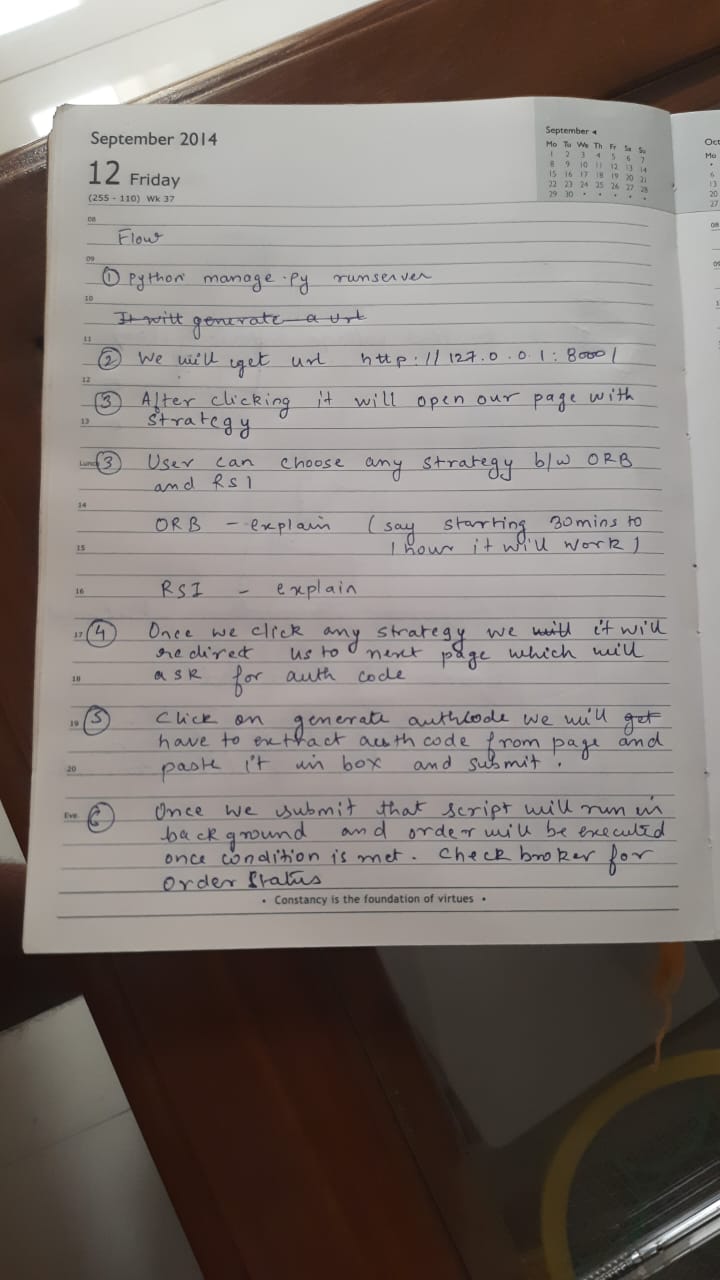 September 2014
12 Friday
(255 - 110) Wk 37
September ◂
Mo Tu We Th Fr Sa Su
1 2 3 4 5 6 7
8 9 10 11 12 13 14
15 16 17 18 19 20 21
22 23 24 25 26 27 28
29 30 • • • • •
Oct
Mo
•
6
13
20
27
08
Flow
09
① Python manage.py runserver
10
It will generate a url
11
② We will get url http://127.0.0.1:8000/
12
③ After clicking it will open our page with
13 strategy
Lunch ③ User can choose any strategy b/w ORB
and RSI
14
ORB - explain (say starting 30mins to
15 1 hour it will work)
16 RSI - explain
17 ④ Once we click any strategy we will it will
redirect us to next page which will
18 ask for auth code
19 ⑤ Click on generate authcode we will get
have to extract auth code from page and
20 paste it in box and submit.
Eve. ⑥ Once we submit that script will run in
background and order will be executed
once condition is met. Check broker for
order status
• Constancy is the foundation of virtues •